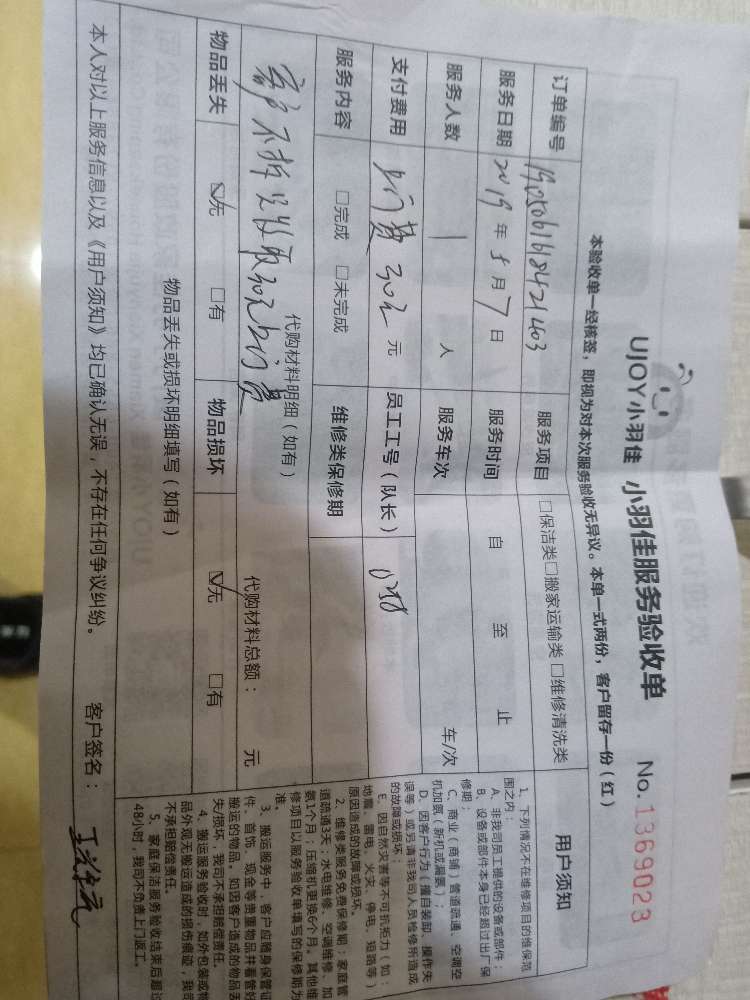 UJOY小羽佳 小羽佳服务验收单 No.1369023
本验收单一经核签，即视为对本次服务验收无异议。本单一式两份，客户留存一份（红）
订单编号 服务项目 □保洁类□搬家运输类 □维修清洗类
服务日期 2019年5月7日 服务时间 自 至 止
服务人数 1 人 服务车次 车/次
支付费用 上门费 30元 元 员工工号（队长）
服务内容 □完成 □未完成 维修类保修期
代购材料明细（如有） 代购材料总额： 元
客户不拆只收取30元上门费
物品丢失 ☑无 □有 物品损坏 ☑无 □有
物品丢失或损坏明细填写（如有）
本人对以上服务信息以及《用户须知》均已确认无误，不存在任何争议纠纷。 客户签名：
用户须知
1、下列情况不在维修项目的维保范
围之内：
A、非我司员工提供的设备或部件；
B、设备或部件本身已经超过出厂保
修期；
C、商业（商铺）管道疏通、空调空
机加氨（新机或漏氨）；
D、因客户行为（擅自装卸、操作失
误等）或另请非我司人员检修所造成
的故障或损坏；
E、因自然灾害等不可抗拒力（如：
地震、雷电、火灾、停电、短路等）
原因造成的故障或损坏。
2、维修类服务免费保修期：家庭管
道疏通3天；水电维修、空调维修、加
氨1个月；压缩机更换6个月。其他维
修项目以服务验收单填写的保修期为
准。
3、搬运服务中，客户应随身保管证
件、首饰、现金等贵重物品并看管好
搬运的物品。如因客户造成的物品丢
失/损坏，我司不承担赔偿责任。
4、搬运服务验收时，如外包装或物
品外观无搬运造成的损伤痕迹，我司
不承担赔偿责任。
5、家庭保洁服务验收结束后超过
48小时，我司不负责上门返工。